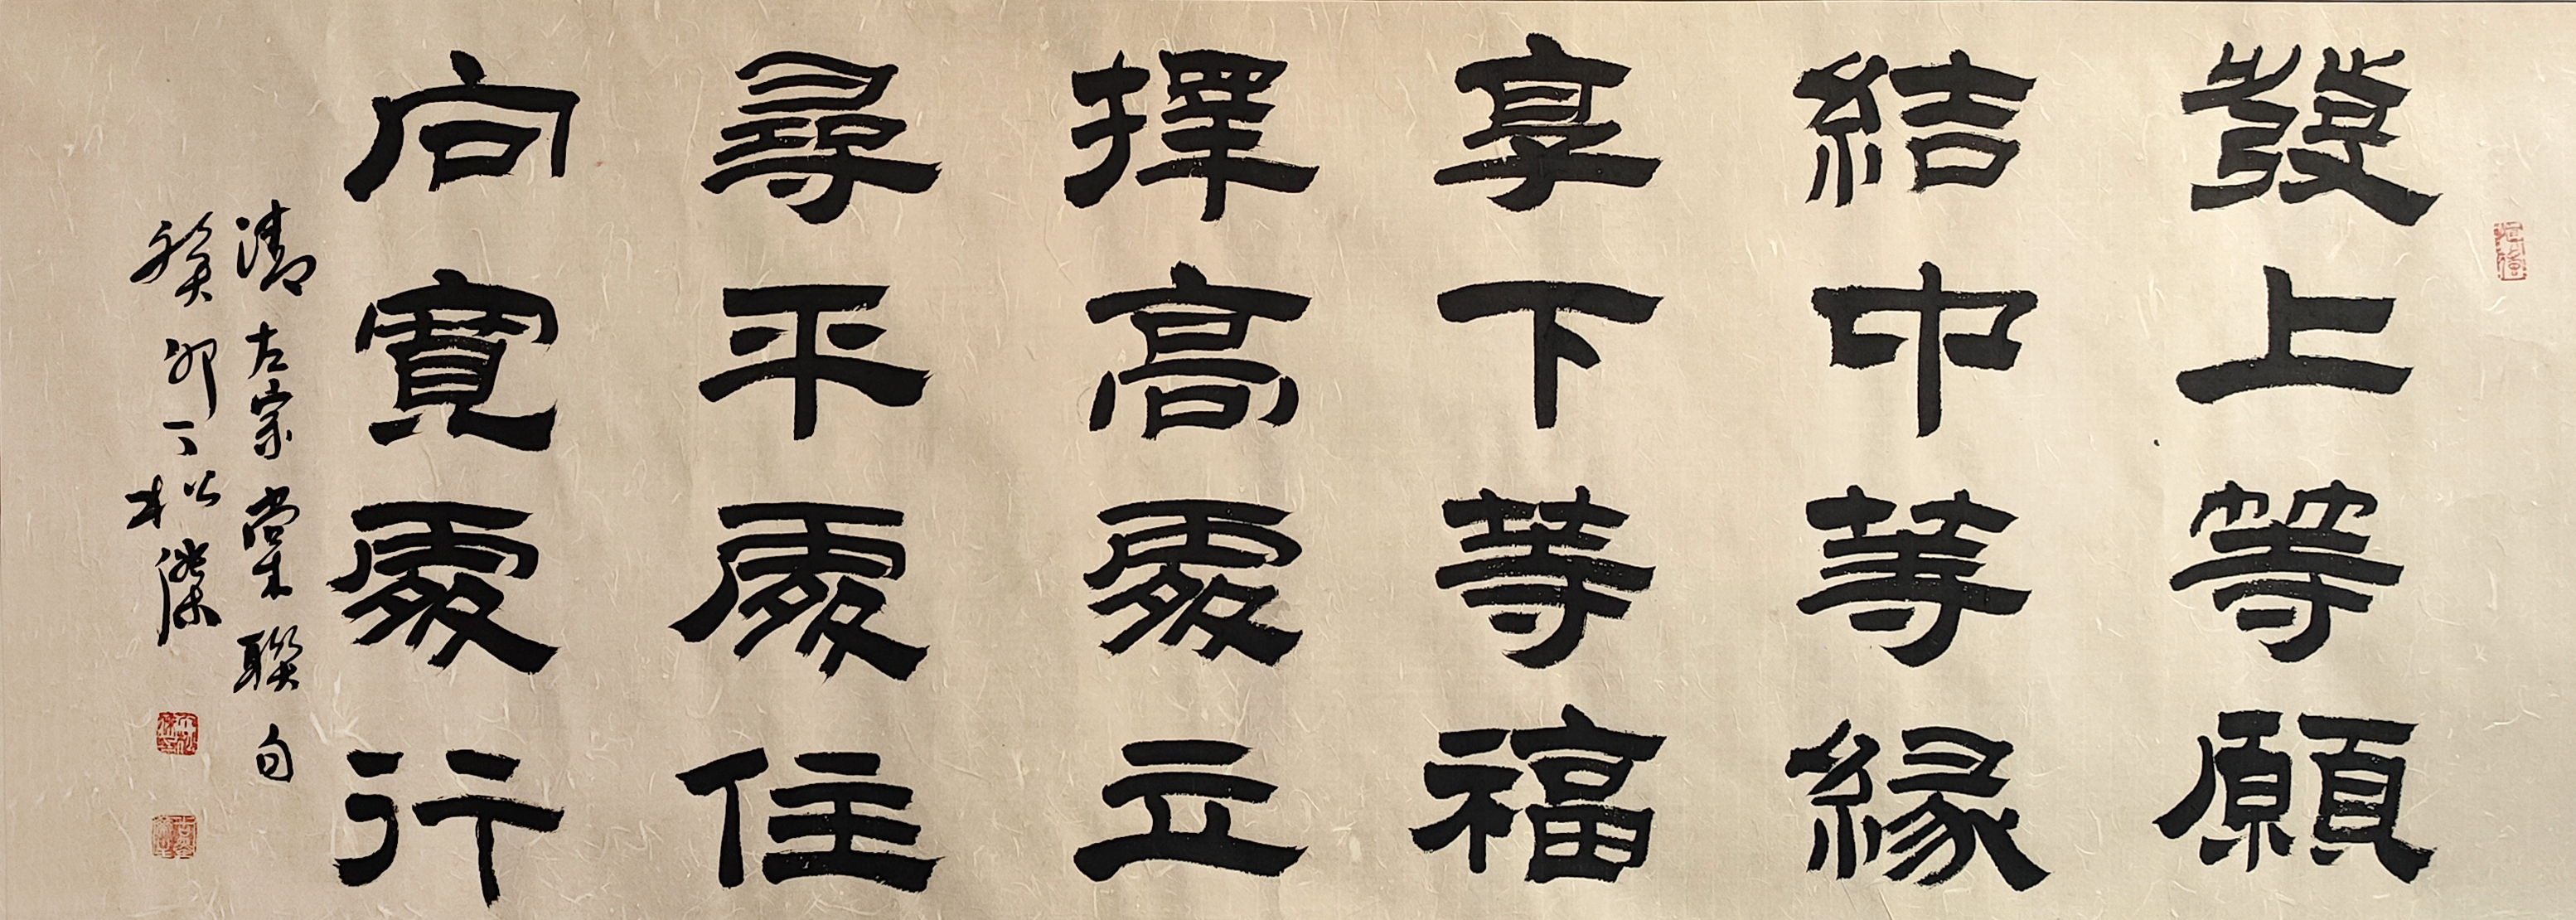 發上等願
結中等緣
享下等福
擇高處立
尋平處住
向寬處行
清左宗棠聯句
癸卯丁松濼